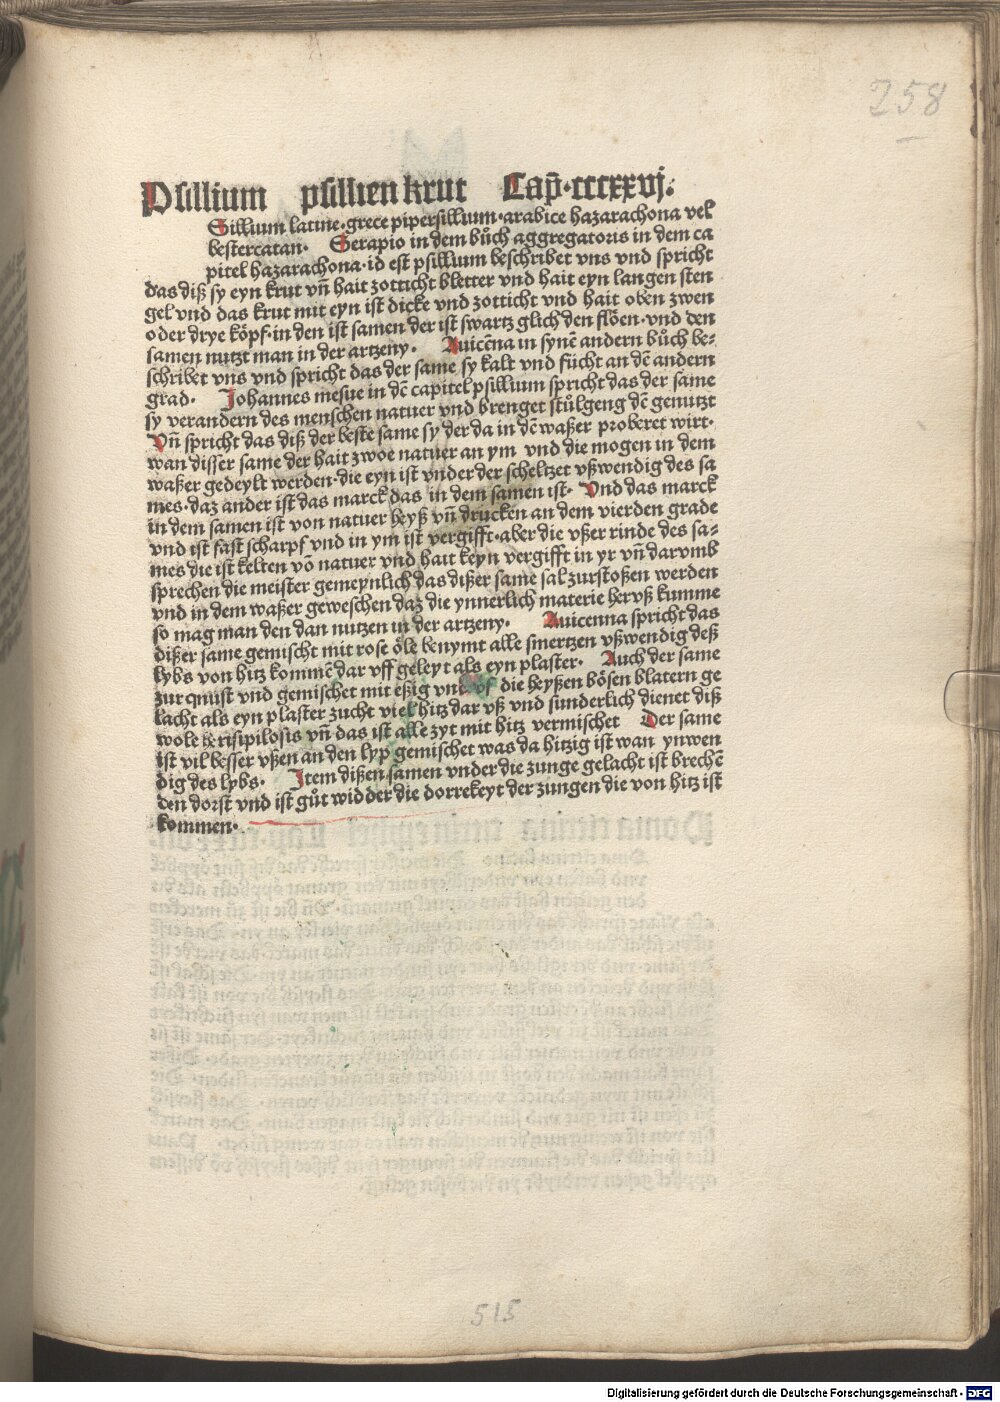 258
Psillium psillien krut Cap̄·cccxxvj·
Sillium latine·grece pipersillium·arabice hazarachona vel
bestercatan· Serapio in dem bůch aggregatoris in dem ca
pitel hazarachona·id est psillium beschribet vns vnd spricht
das diß sy eyn krut vñ hait zotticht bletter vnd hait eyn langen sten
gel vnd das krut mit eyn ist dicke vnd zotticht vnd hait oben zwen
oder drye köpf·in den ist samen der ist swartz glich den flöen·vnd den
samen nutzt man in der artzeny· Auicēna in synē andern bůch be-
schribet vns vnd spricht das der same sy kalt vnd fücht an dē andern
grad· Johannes mesue in dē capitel psillium spricht das der same
sy verandern des menschen natuer vnd brenget stůlgeng dē genutzt
Vñ spricht das diß der beste same sy der da in dē waßer proberet wirt·
wan disser same der hait zwoe natuer an ym vnd die mogen in dem
waßer gedeylt werden·die eyn ist vnder der scheltzet vßwendig des sa
mes·daz ander ist das marck das in dem samen ist· Vnd das marck
in dem samen ist von natuer heyß vñ drucken an dem vierden grade
vnd ist fast scharpf vnd in ym ist vergifft·aber die vßer rinde des sa-
mes die ist kelten vō natuer vnd hait keyn vergifft in yr vñ darvmb
sprechen die meister gemeynlich das dißer same sal zurstoßen werden
vnd in dem waßer geweschen daz die ynnerlich materie hervß kumme
so mag man den dan nutzen in der artzeny· Auicenna spricht das
dißer same gemischt mit rose öle benymt alle smertzen vßwendig deß
lybs von hitz kommē dar vff geleyt als eyn plaster· Auch der same
zur qnust vnd gemischet mit eßig vnd vf die heyßen bösen blatern ge
lacht als eyn plaster zucht viel hitz dar vß vnd sunderlich dienet diß
wole herisipilosis vñ das ist alle zyt mit hitz vermischet Der same
ist vil besser vßen an den lyp gemischet was da hitzig ist wan ynwen
dig des lybs· Item dißen samen vnder die zunge gelacht ist brechē
den dorst vnd ist gůt widder die dorrekeyt der zungen die von hitz ist
kommen·
515
Digitalisierung gefördert durch die Deutsche Forschungsgemeinschaft - DFG